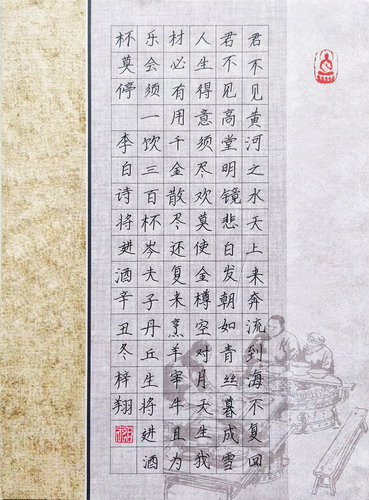 君不见黄河之水天上来奔流到海不复回
君不见高堂明镜悲白发朝如青丝暮成雪
人生得意须尽欢莫使金樽空对月天生我
材必有用千金散尽还复来烹羊宰牛且为
乐会须一饮三百杯岑夫子丹丘生将进酒
杯莫停 李白诗将进酒辛丑冬梓翔